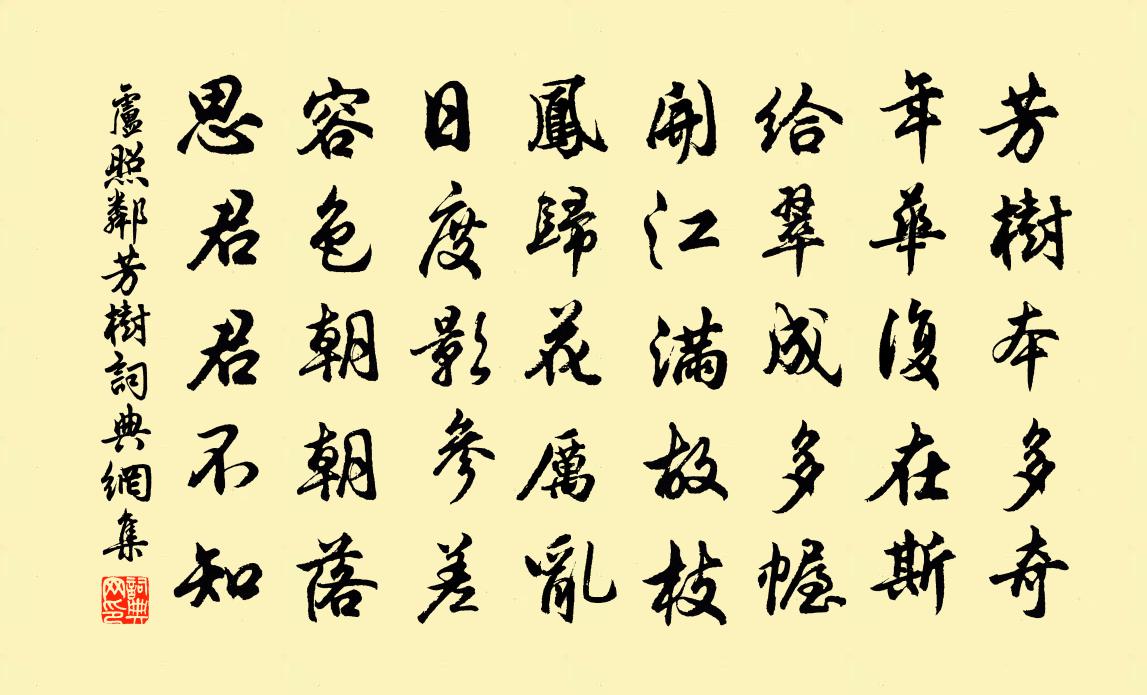 芳樹本多奇
年華復在斯
給翠成多幄
開江滿故枝
鳳歸花厲亂
日度影參差
容色朝朝落
思君君不知
盧照鄰芳樹詞典網集
詞典网印